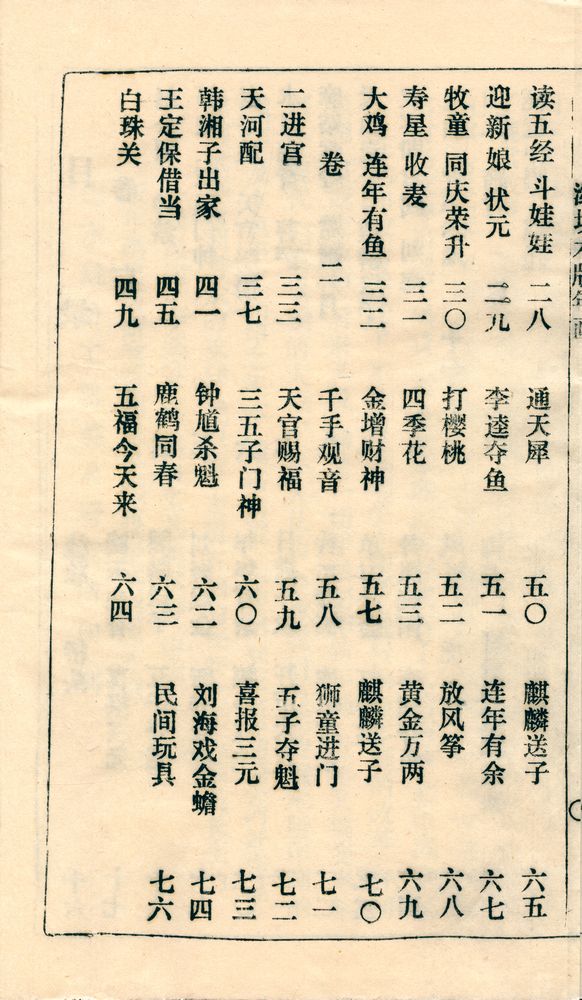 读五经 斗娃娃 二八
迎新娘 状元 二九
牧童 同庆荣升 三〇
寿星 收麦 三一
大鸡 连年有鱼 三二
卷 二
二进宫 三三
天河配 三七
韩湘子出家 四一
王定保借当 四五
白珠关 四九
通天犀 五〇
李逵夺鱼 五一
打樱桃 五二
四季花 五三
金增财神 五七
千手观音 五八
天官赐福 五九
三五子门神 六〇
钟馗杀魁 六二
鹿鹤同春 六三
五福今天来 六四
麒麟送子 六五
连年有余 六七
放风筝 六八
黄金万两 六九
麒麟送子 七〇
狮童进门 七一
五子夺魁 七二
喜报三元 七三
刘海戏金蟾 七四
民间玩具 七六